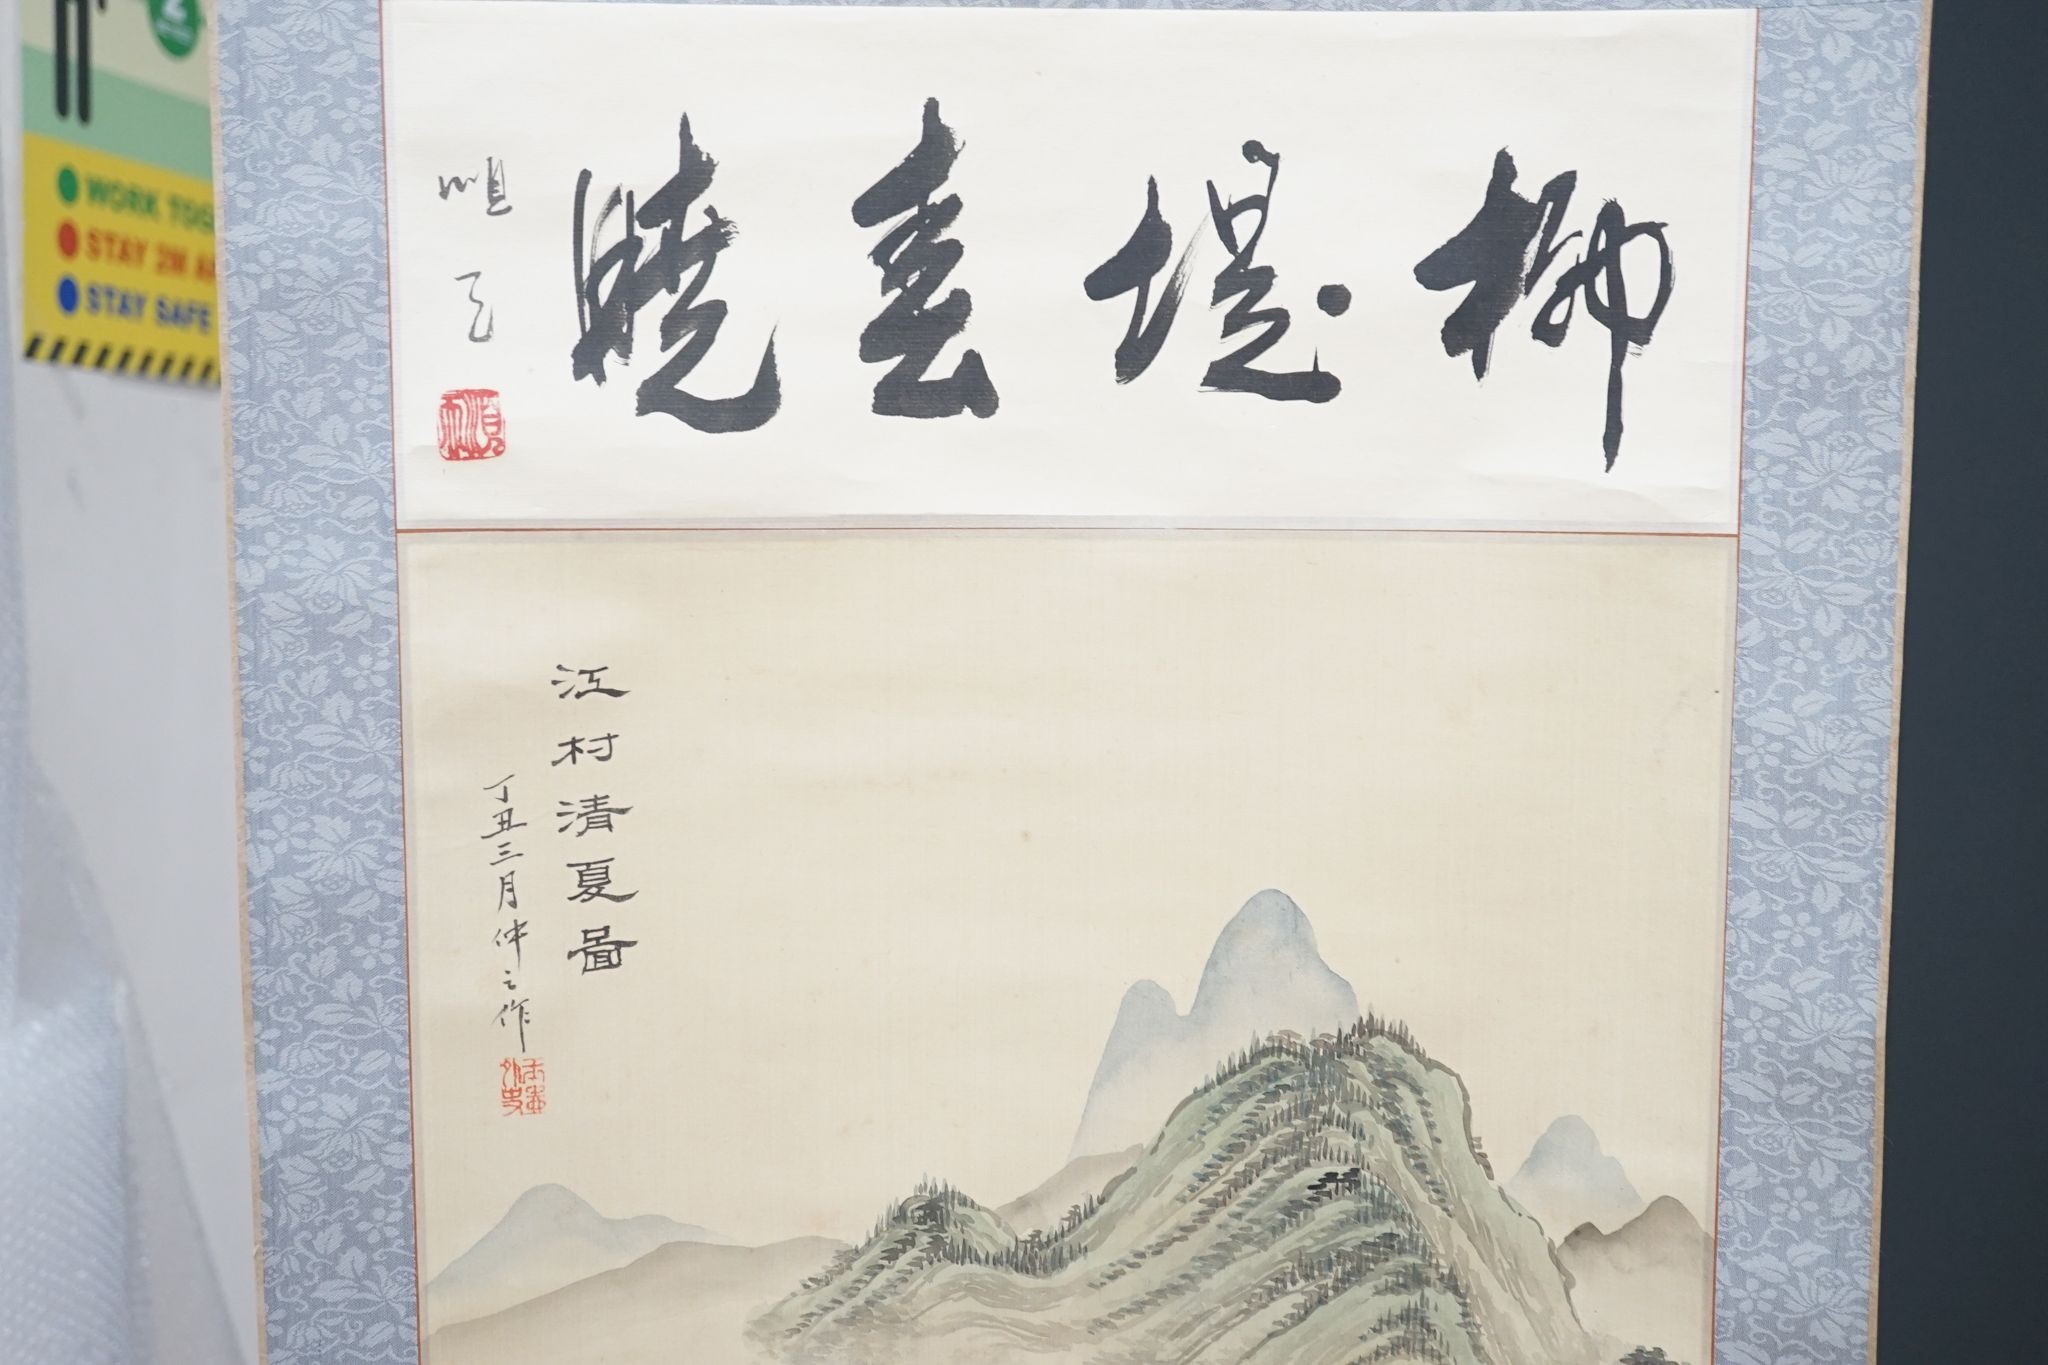 柳堤春曉
江村清夏圖
丁丑三月仲之作
2
WORK TOG
STAY 2M A
STAY SAFE